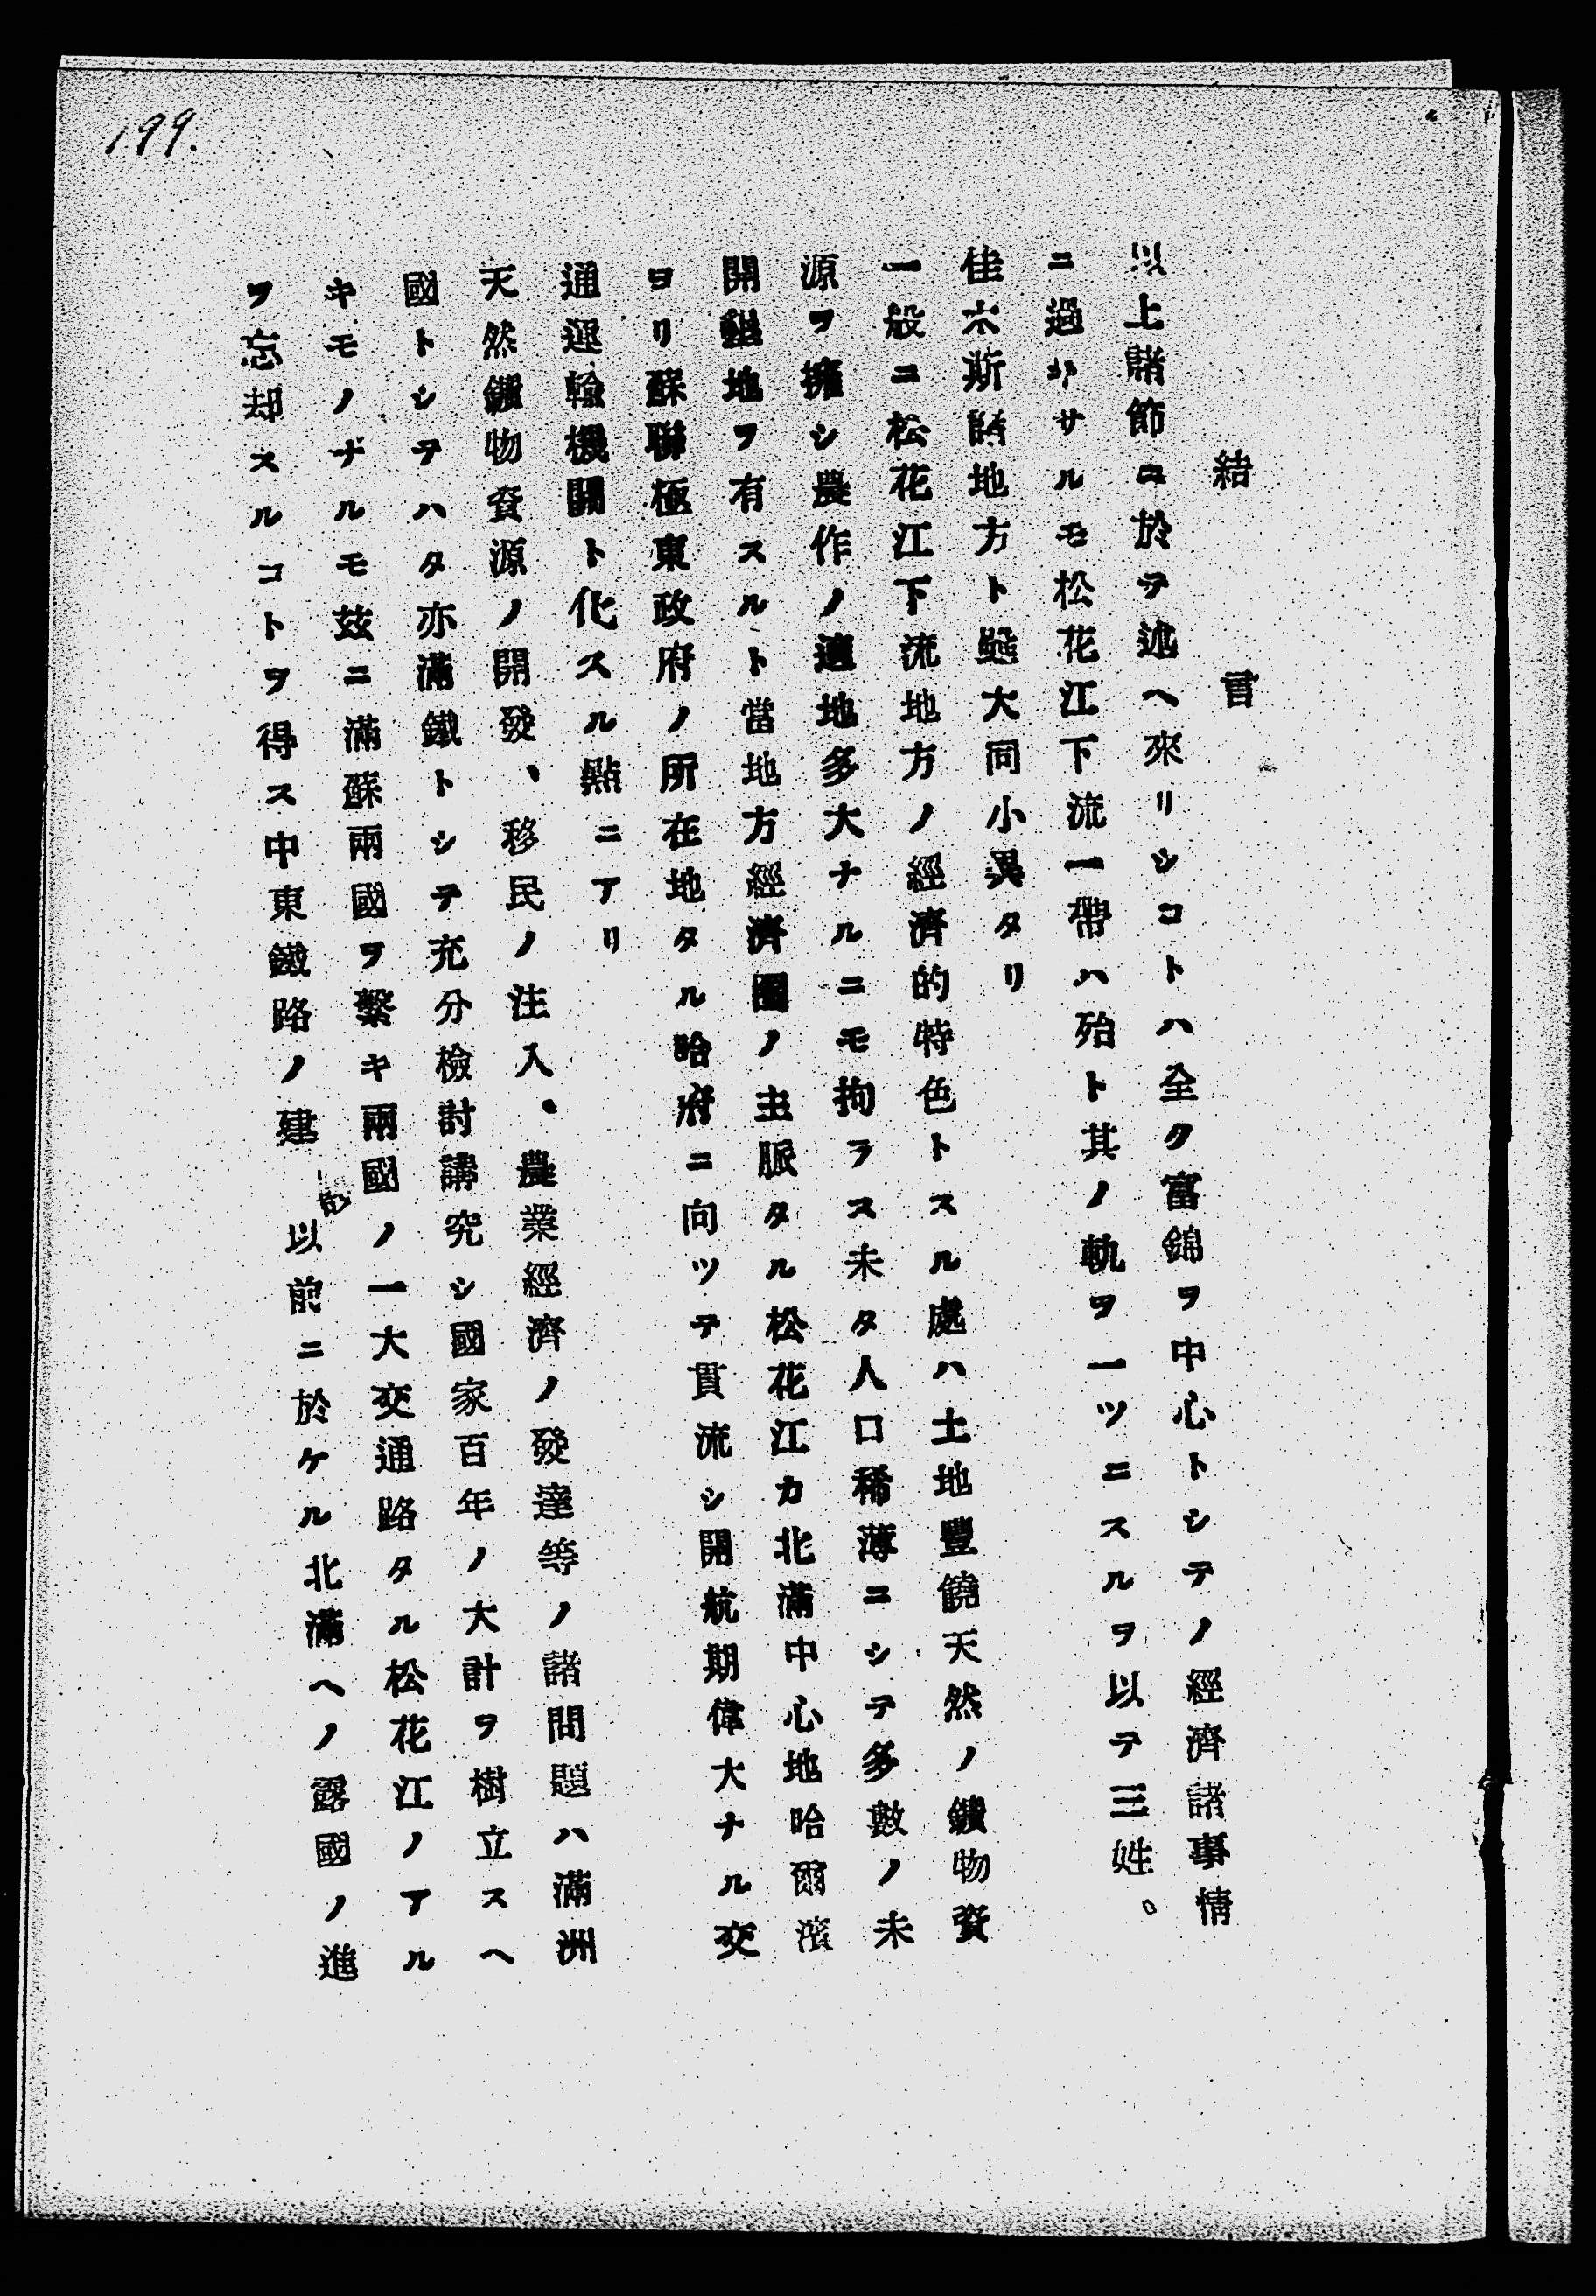 199.
結言
以上諸節ニ於テ述ヘ來リシコトハ全ク富錦ヲ中心トシテノ經濟諸事情
ニ過キサルモ松花江下流一帶ハ殆ト其ノ軌ヲ一ツニスルヲ以テ三姓、
佳木斯諸地方ト雖大同小異タリ
一般ニ松花江下流地方ノ經濟的特色トスル處ハ土地豐饒天然ノ鑛物資
源ヲ擁シ農作ノ適地多大ナルニモ拘ラス未タ人口稀薄ニシテ多數ノ未
開墾地ヲ有スルト當地方經濟圈ノ主脈タル松花江カ北滿中心地哈爾濱
ヨリ蘇聯極東政府ノ所在地タル哈府ニ向ツテ貫流シ開航期偉大ナル交
通運輸機關ト化スル點ニアリ
天然鑛物資源ノ開發、移民ノ注入、農業經濟ノ發達等ノ諸問題ハ滿洲
國トシテハタ亦滿鐵トシテ充分檢討講究シ國家百年ノ大計ヲ樹立スヘ
キモノナルモ茲ニ滿蘇兩國ヲ繫キ兩國ノ一大交通路タル松花江ノアル
ヲ忘却スルコトヲ得ス中東鐵路ノ建設以前ニ於ケル北滿ヘノ露國ノ進